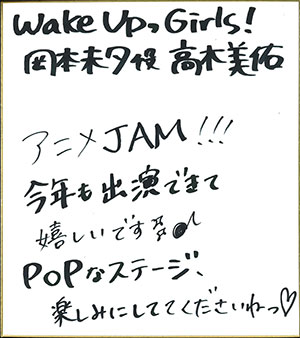 Wake Up, Girls!
岡本未夕役 高木美佑
アニメJAM!!!
今年も出演できて
嬉しいです♪
POPなステージ、
楽しみにしててくださいねっ♡